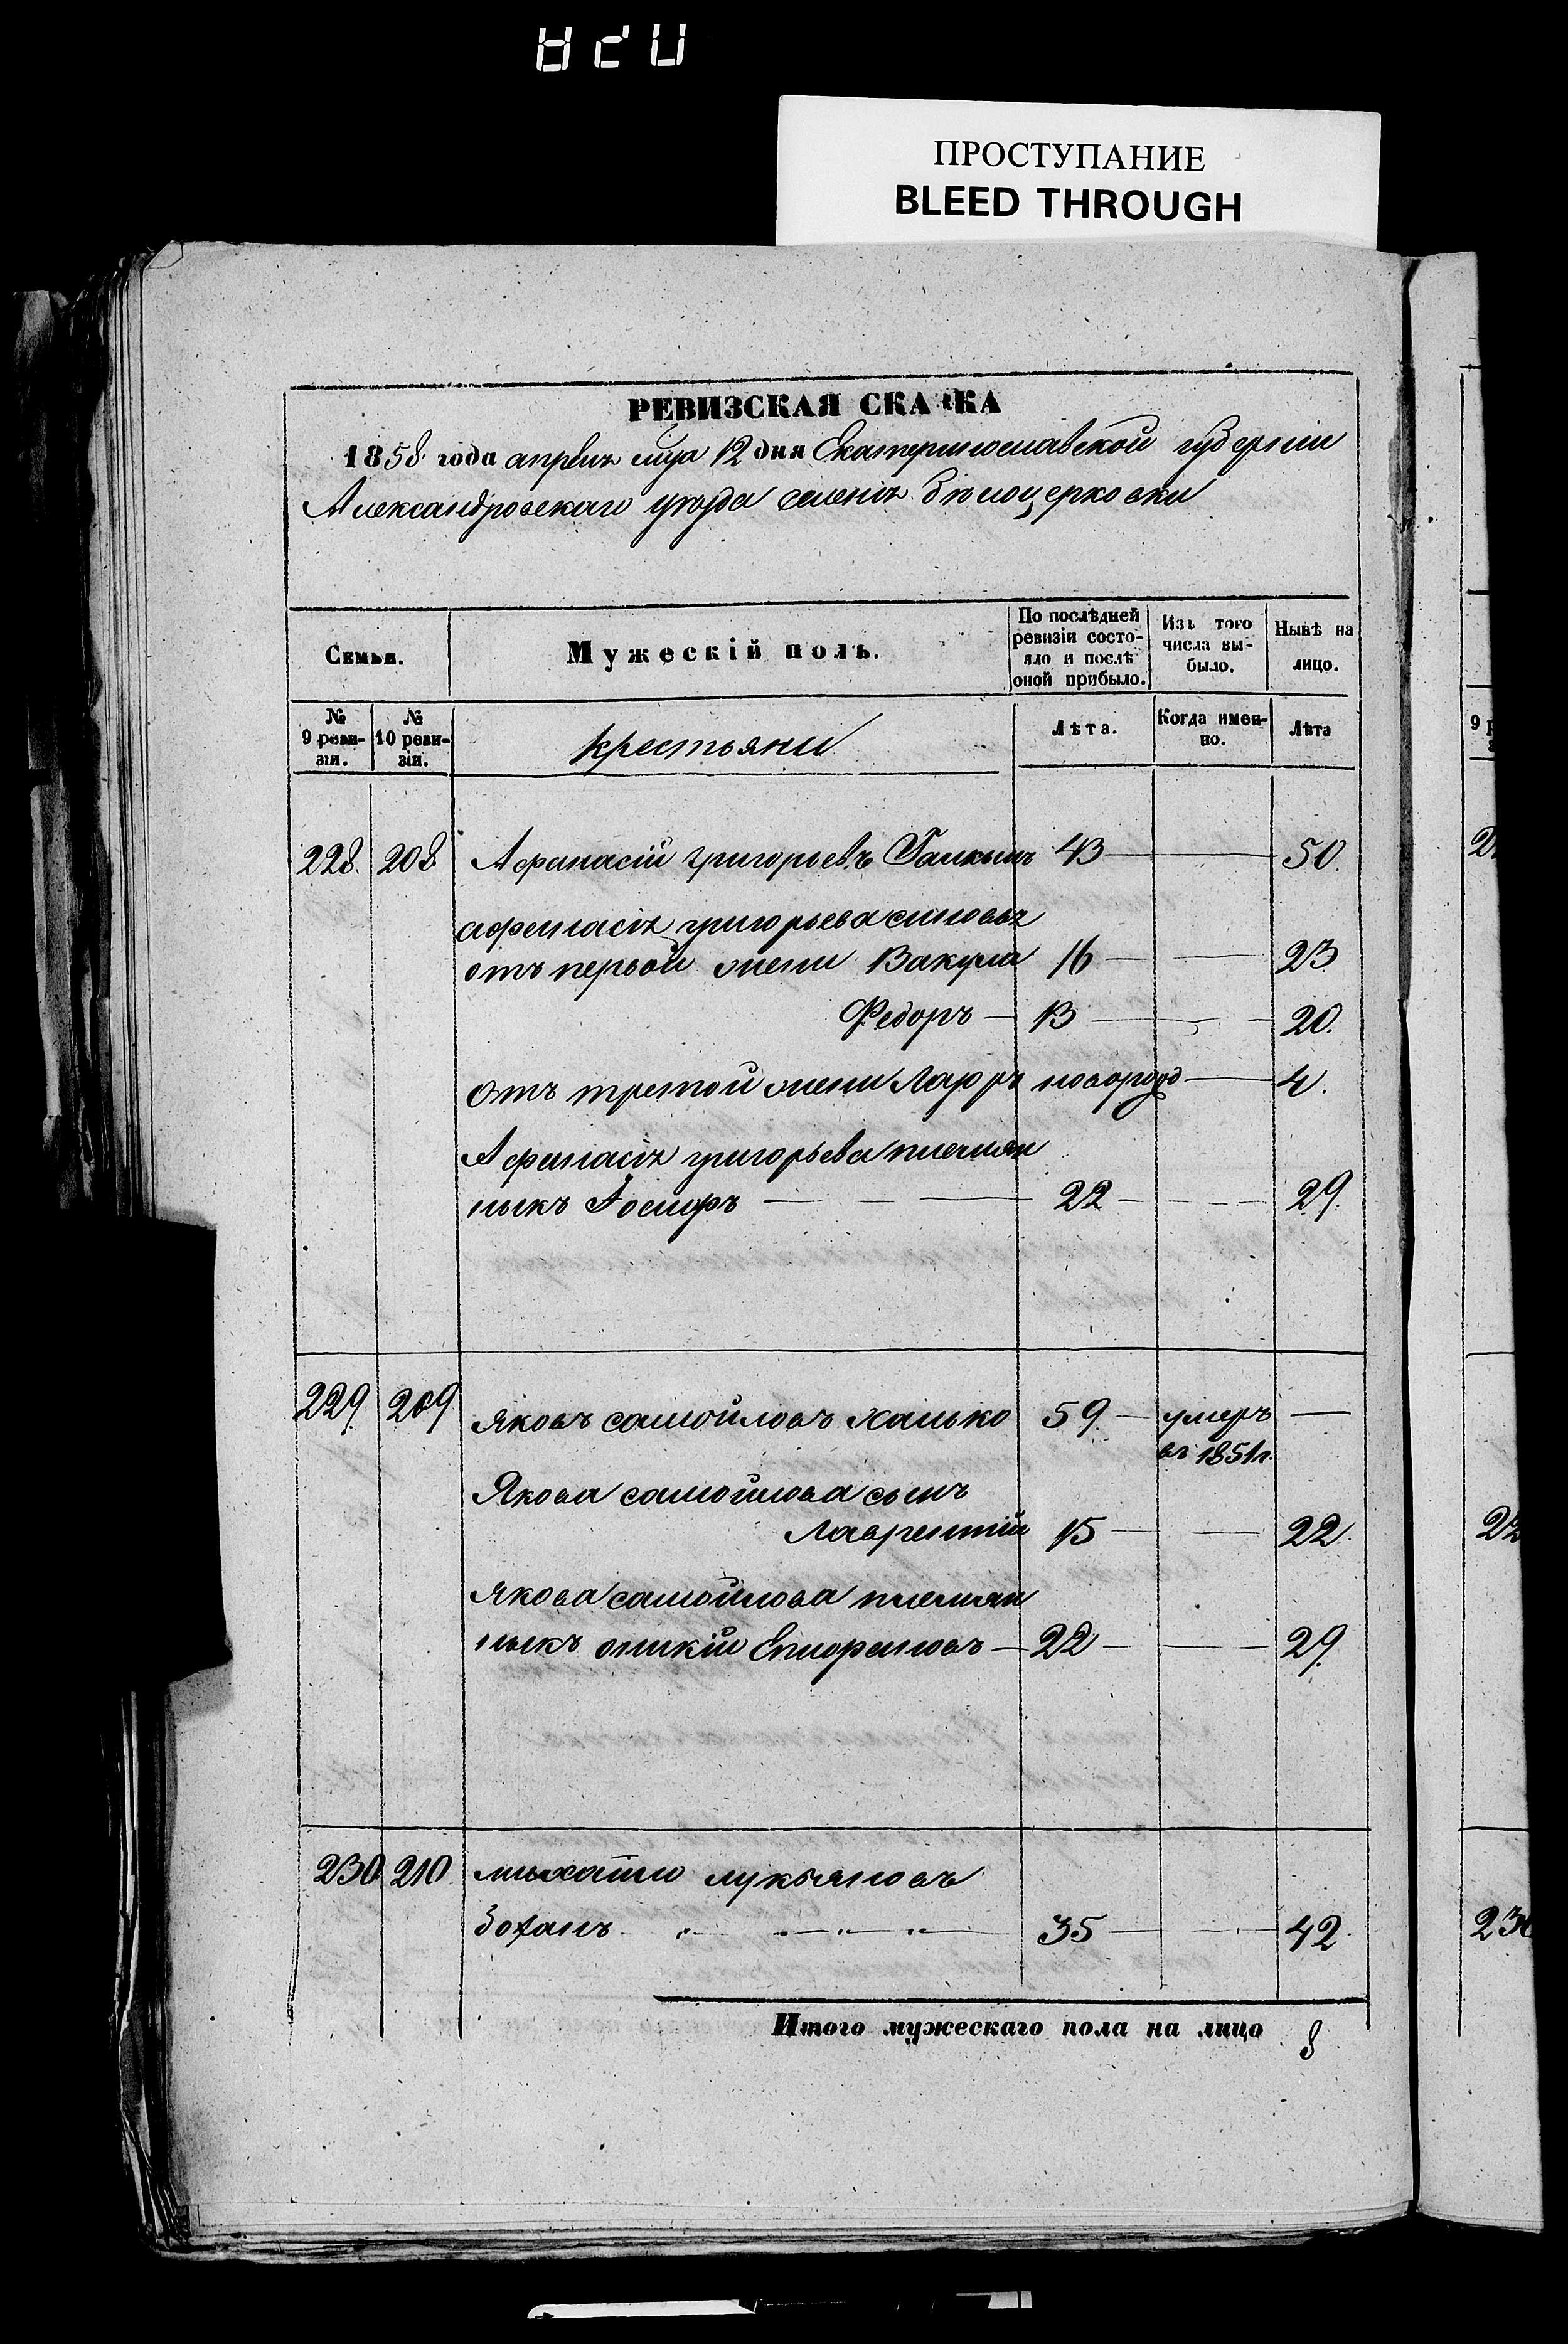 ПРОСТУПАНИЕ
BLEED THROUGH
РЕВИЗСКАЯ СКАЗКА
1858 года апреля мца 12 дня Екатеринославской губернии
Александровскаго уезда селеня белоцерковки
Семьи. Мужескій полъ. По послѣдней ревизіи состояло и послѣ оной прибыло. Изъ того числа выбыло. Нынѣ на лицо.
№ 9 ревизіи. № 10 ревизіи. крестьяни Лѣта. Когда именно. Лѣта
228. 208 Афанасій григорьевъ Галкынъ 43 50.
афанасія григорьева синовья
отъ первой жени Вакула 16 23
Федоръ 13 20.
отъ третой жени Лавръ новорожд 4.
Афанасія григорьева племян
ныкъ Іосифъ 22 29.
229 209 яковъ самойловъ ханько 59. умеръ
въ 1851г.
Якова самойлова сынъ
Лаврентій 15 22.
якова самойлова племян
ныкъ оникій Епифановъ 22 29.
230 210. михайло лукьяновъ
35 42.
Итого мужескаго пола на лицо 8
9
230